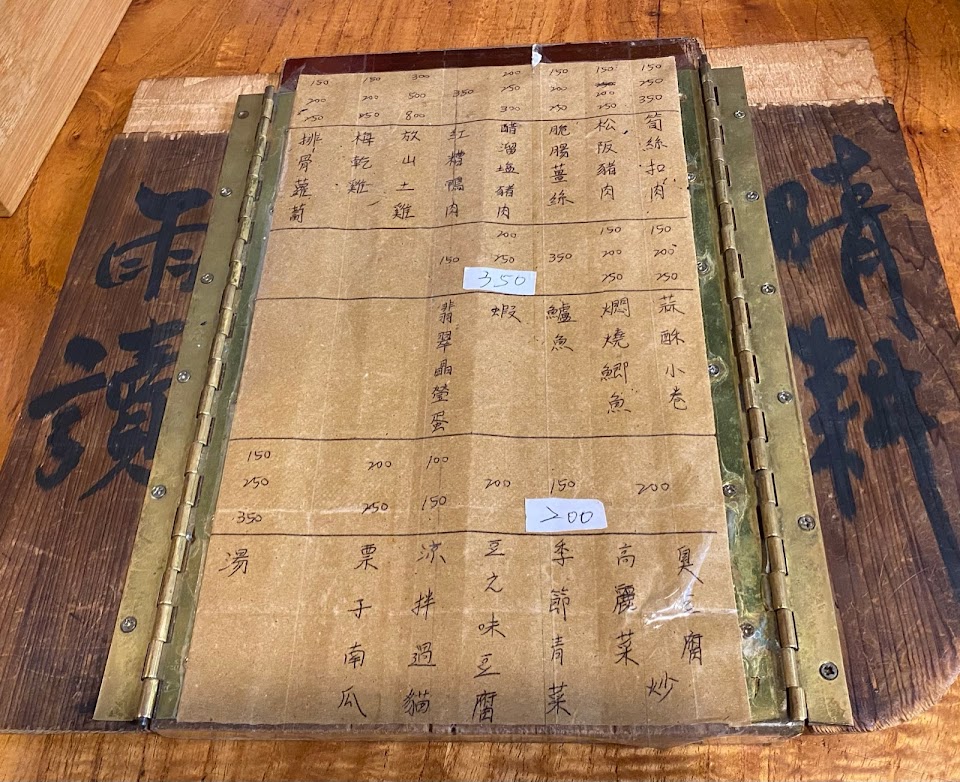 晴耕
150
250
350
筍絲扣肉
150
200
250
松阪豬肉
150
200
250
脆腸薑絲
200
250
300
醋溜塩豬肉
350
紅糟鴨肉
300
500
800
放山土雞
150
200
250
梅乾雞
150
200
250
排骨蘿蔔
150
200
250
蒜酥小卷
150
200
250
燜燒鯽魚
350
鱸魚
200
250
350
蝦
150
翡翠晶瑩蛋
200
臭豆腐
高麗菜
炒
150
200
季節青菜
200
豆之味豆腐
100
150
涼拌過貓
200
250
票子南瓜
150
250
350
湯
雨讀